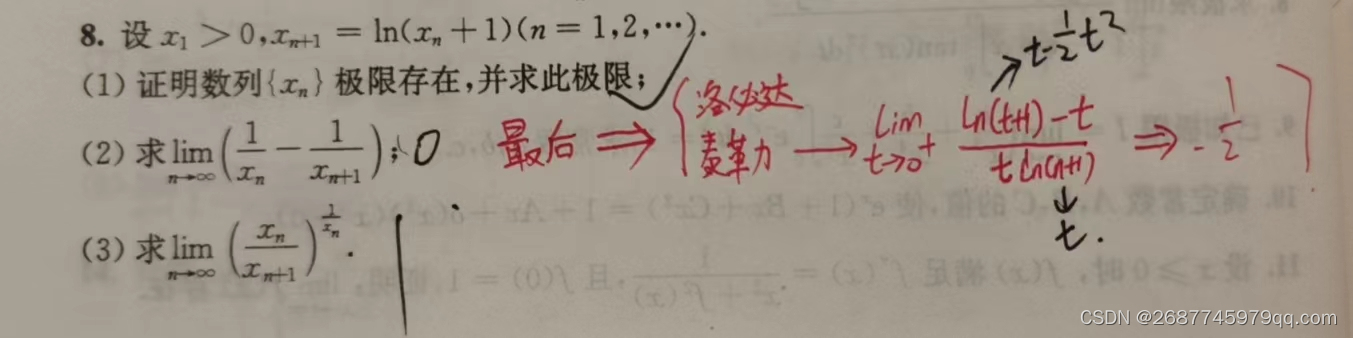 8. 设 x₁ > 0, xₙ₊₁ = ln(xₙ + 1)(n = 1,2,⋯).
(1) 证明数列{xₙ} 极限存在,并求此极限;
(2) 求 lim_{n→∞} (1/xₙ − 1/xₙ₊₁); 0
(3) 求 lim_{n→∞} (xₙ/xₙ₊₁)^{1/xₙ}.
t-½t²
最后 ⇒ { 洛必达
→ lim_{t→0⁺} (ln(t+1) - t)/(t ln(t+1)) ⇒ -1/2
↓
t.
CSDN @2687745979qq.com